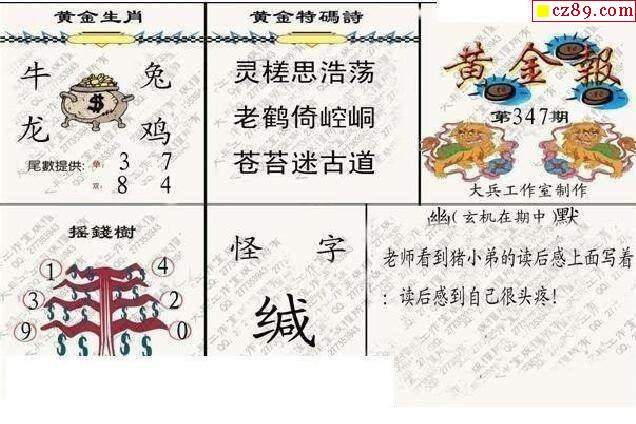 cz89.com
黄金生肖
牛 兔
龙 鸡
$
尾數提供: 单 3 7
双 8 4
黄金特碼詩
灵槎思浩荡
老鹤倚崆峒
苍苔迷古道
黄金報
第347期
大兵工作室制作
摇錢樹
1 4
3 2
9 0
怪 字
缄
幽(玄机在期中)默
老师看到猪小弟的读后感上面写着
：读后感到自己很头疼!